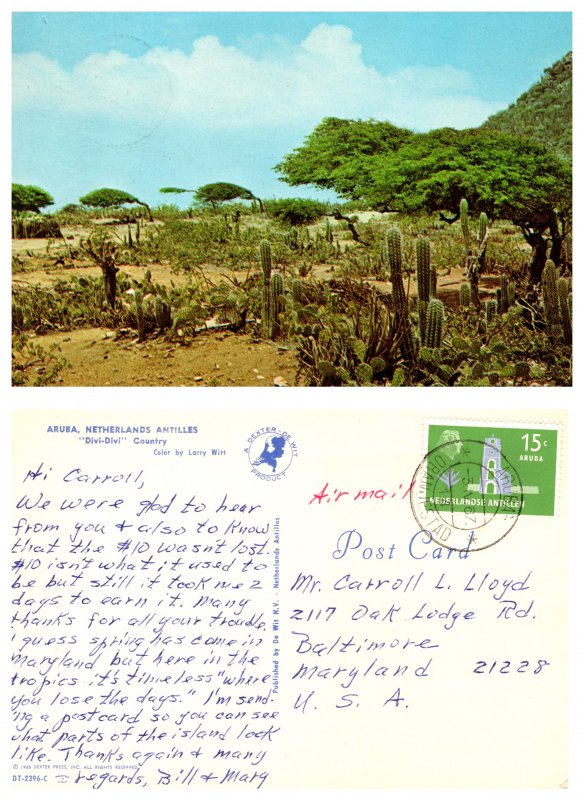 ARUBA, NETHERLANDS ANTILLES
"Divi-Divi" Country
Color by Larry Witt
A DEXTER-DE WIT
PRODUCT
15c
ARUBA
NEDERLANDSE ANTILLEN
ORANJESTAD
ARUBA
67
Air mail
Post Card
Hi Carroll,
We were glad to hear
from you & also to know
that the $10 wasn't lost.
$10 isn't what it used to
be but still it took me 2
days to earn it. Many
thanks for all your trouble.
I guess spring has come in
Maryland but here in the
tropics it's timeless "where
you lose the days." I'm send-
ing a postcard so you can see
what parts of the island look
like. Thanks again & many
regards, Bill & Mary
Published by De Wit N.V. - Netherlands Antilles
Mr. Carroll L. Lloyd
2117 Oak Lodge Rd.
Baltimore
Maryland 21228
U. S. A.
DEXTER PRESS, INC. ALL RIGHTS RESERVED
DT-2396-C